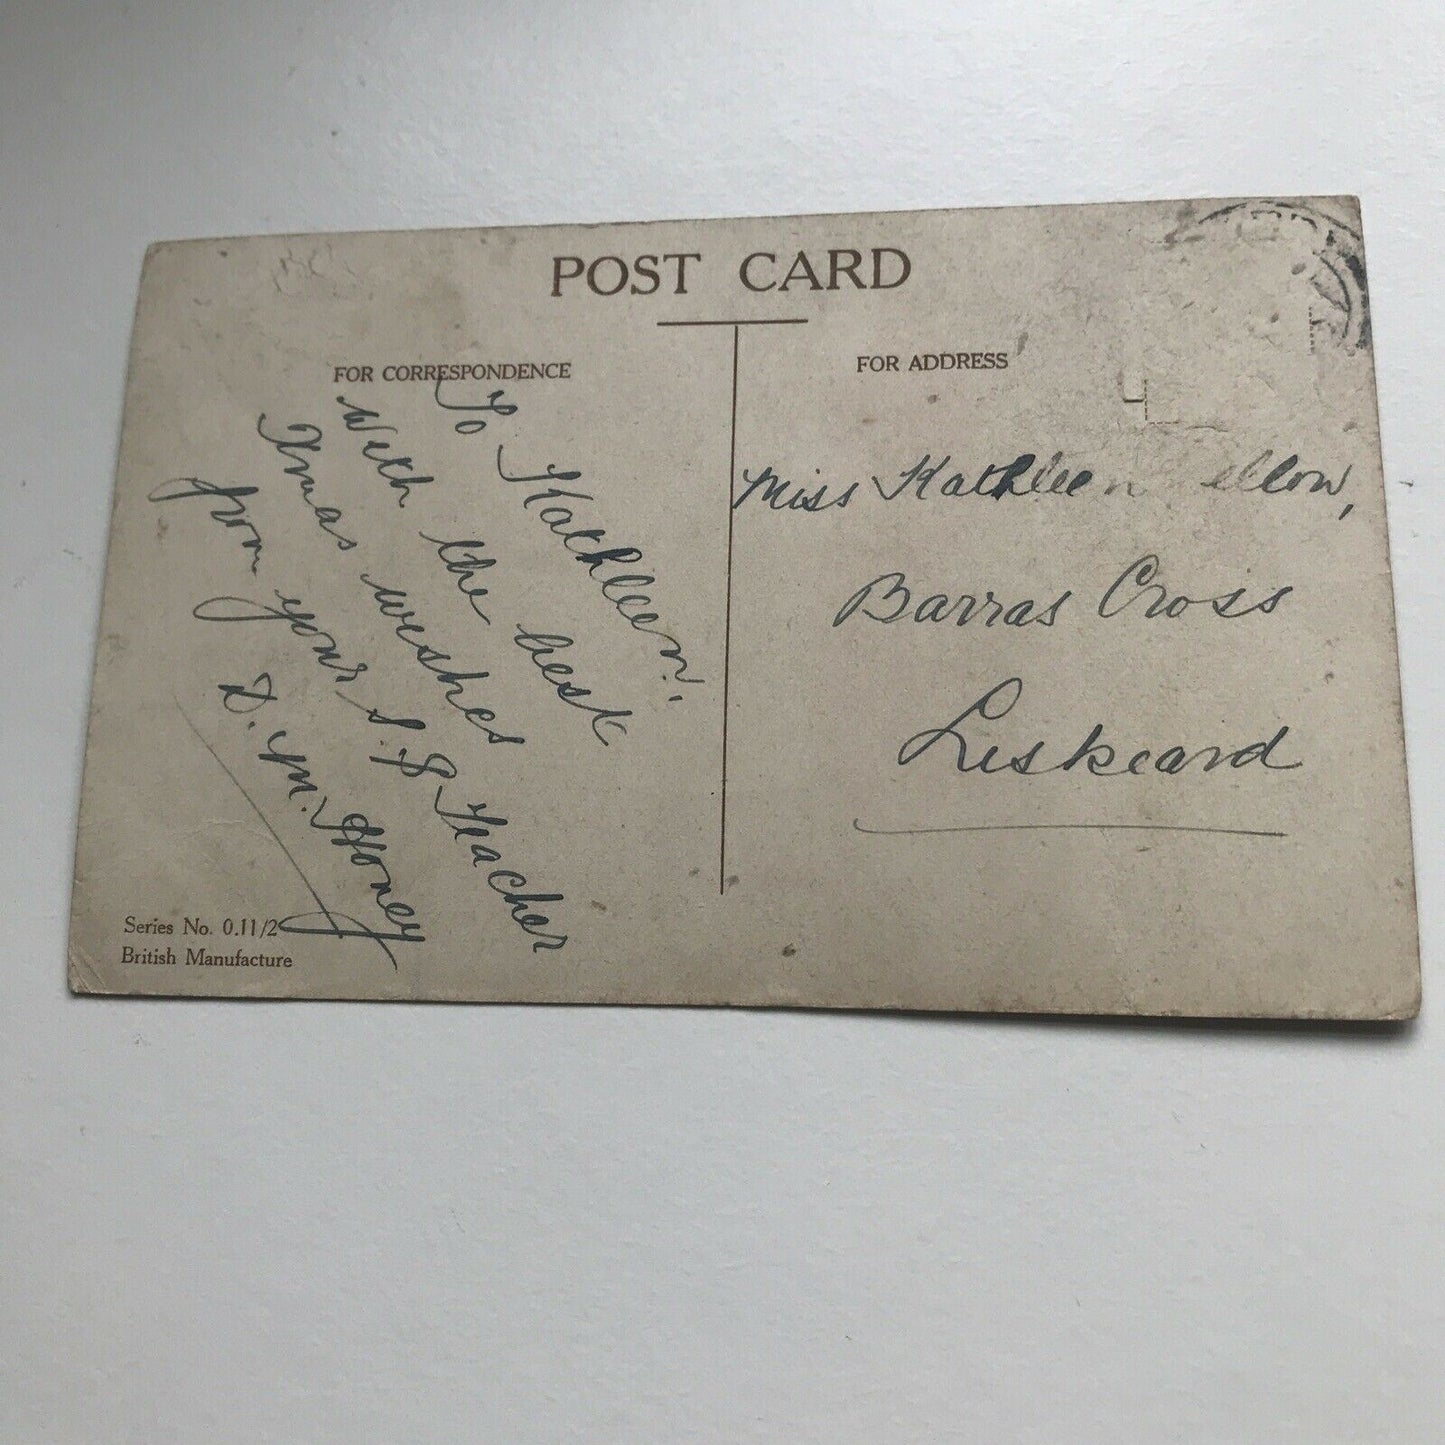 POST CARD
FOR CORRESPONDENCE
To Kathleen.
With the best
Xmas wishes
from your S.S Teacher
D. M. Honey
Series No. 0.11/2
British Manufacture
FOR ADDRESS
Miss Kathleen ellow,
Barras Cross
Liskeard